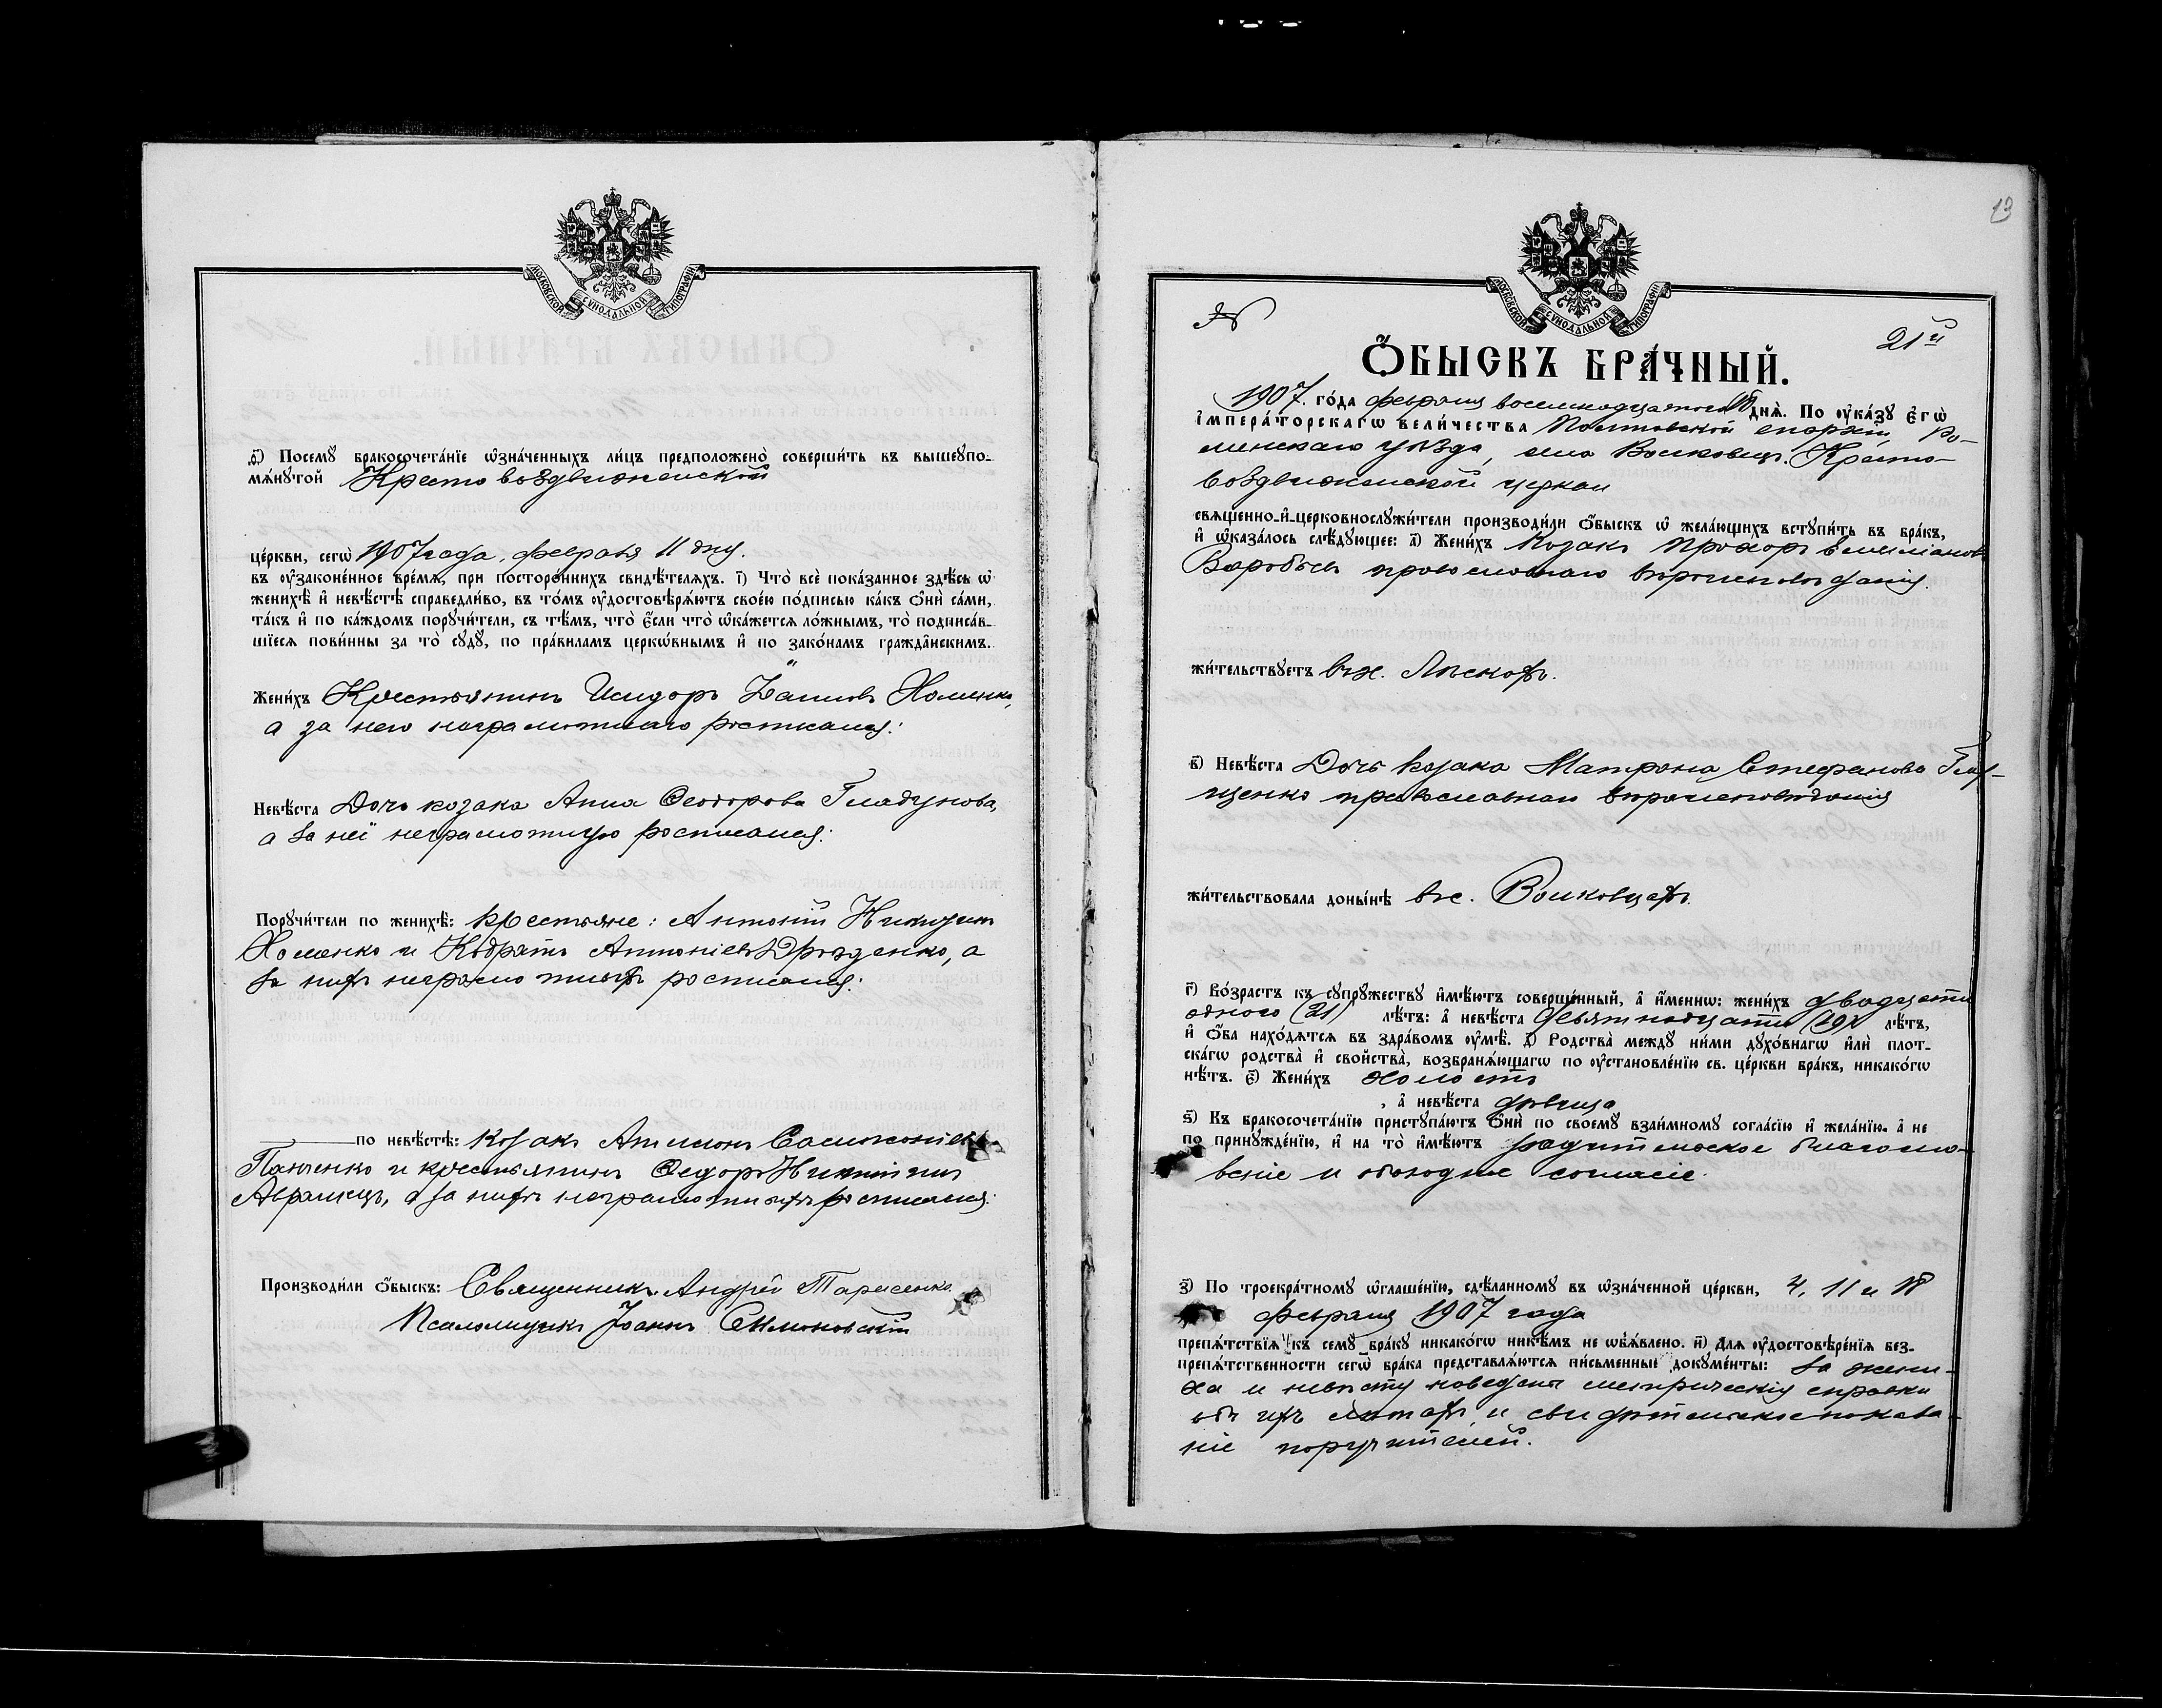 МОСКОВСКОЙ СѴНОДАЛЬНОЙ ТИПОГРАФІИ
ѳ҃) Посемꙋ̀ бракосочета́нїе ѡ҆зна́ченныхъ ли́цъ предположено̀ соверши́ть въ вышеꙋпо-
мѧ́нꙋтой Кресто воздвиженской
це́ркви, сегѡ̀ 1907 года, февраля 11 дня.
въ ᲂу҆зако́не́нное вре́мѧ, при посторо́ннихъ свидѣ́телѧхъ. і҃) Что̀ всѐ пока́занное здѣ́сь ѡ҆
женихѣ̀ и҆ невѣ́стѣ справедли́во, въ то́мъ ᲂу҆достовѣрѧ́ютъ свое́ю по́дписью ка́къ ѻ҆нѝ са́ми,
та́къ и҆ по ка́ждомъ порꙋчи́тели, съ тѣ́мъ, что̀ є҆́сли что̀ ѡ҆ка́жетсѧ ло́жнымъ, то̀ подписа́в-
шїесѧ пови́нны за то̀ сꙋдꙋ̀, по пра́виламъ церкѡ́внымъ и҆ по зако́намъ гражда́нскимъ.
Жени́хъ Крестьянинъ Исидоръ Хоменко,
а за него неграмотнаго росписался:
Невѣ́ста Дочь козака Анна Ѳеодорова Гладунова,
а за неё неграмотную росписался:
Порꙋчи́тели по женихѣ̀: крестьяне: Антоній
Хоменко и Кодратъ Антоніевъ Дрозденко, а
за нихъ неграмотныхъ росписался:
по невѣ́стѣ: козакъ
Панченко и крестьянинъ Ѳедоръ Никитинъ
а за нихъ неграмотныхъ росписался:
Производи́ли ѻ҆́быскъ: Священникъ Андрей Тарасенко
Псаломщикъ Іоаннъ Симоновскій
13
МОСКОВСКОЙ СѴНОДАЛЬНОЙ ТИПОГРАФІИ
№
21й
Ѻ҆́БЫСКЪ БРА́ЧНЫЙ.
1907. го́да февраля восемнадцатого 18 днѧ̀. По ᲂу҆ка́зꙋ є҆гѡ̀
і҆мпера́торскагѡ вели́чества Полтавской епархіи, Ро-
менскаго уѣзда, села Волковецъ, Кресто-
воздвиженской церкви
свѧще́нно-и҆-церковнослꙋжи́тели производи́ли ѻ҆́быскъ ѡ҆ жела́ющихъ встꙋпи́ть въ бра́къ,
и҆ ѡ҆каза́лось слѣ́дꙋющее: а҃) Жени́хъ Козакъ Прохоръ Емиліановъ
Воробьевъ православнаго вѣроисповѣданія.
жи́тельствꙋетъ въ х. Лѣскахъ.
в҃) Невѣ́ста Дочь козака Матрона Стефанова Гла-
щенко православнаго вѣроисповѣданія
жи́тельствовала доны́нѣ въ с. Волковцахъ.
г҃) Во́зрастъ къ сꙋпрꙋ́жествꙋ и҆мѣ́ютъ соверше́нный, а҆ и҆́меннѡ: жени́хъ двадцати
одного (21) лѣ́тъ: а҆ невѣ́ста девятнадцати (19) лѣ́тъ,
и҆ ѻ҆́ба нахо́дѧтсѧ въ здра́вомъ ᲂу҆мѣ̀. д҃) Родства̀ междꙋ̀ ни́ми дꙋхо́внагѡ и҆лѝ плот-
ска́гѡ родства̀ и҆ свойства̀, возбранѧ́ющагѡ по ᲂу҆становле́нїю св. це́ркви бра́къ, никако́гѡ
нѣ́тъ. є҃) Жени́хъ холостъ
, а҆ невѣ́ста дѣвица
ѕ҃) Къ бракосочета́нїю пристꙋпа́ютъ ѻ҆нѝ по своемꙋ̀ взаи́мномꙋ согла́сїю и҆ жела́нїю, а҆ не
по принꙋжде́нїю, и҆ на то̀ и҆мѣ́ютъ родительское благосло-
веніе и обоюдное согласіе.
з҃) По троекра́тномꙋ ѡ҆глаше́нїю, сдѣ́ланномꙋ въ ѡ҆зна́ченной це́ркви, 4, 11 и 18
февраля 1907 года
препѧ́тствїѧ къ семꙋ̀ бра́кꙋ никако́гѡ никѣ́мъ не ѡ҆б̾ѧ́влено. и҃) Длѧ ᲂу҆достовѣре́нїѧ без-
препѧ́тственности сегѡ̀ бра́ка представлѧ́ютсѧ пи́сьменные докꙋме́нты: За жени-
ха и невѣсту наведена метрическія справки
объ ихъ лѣтахъ и свидѣтельское показа-
ніе поручителей.